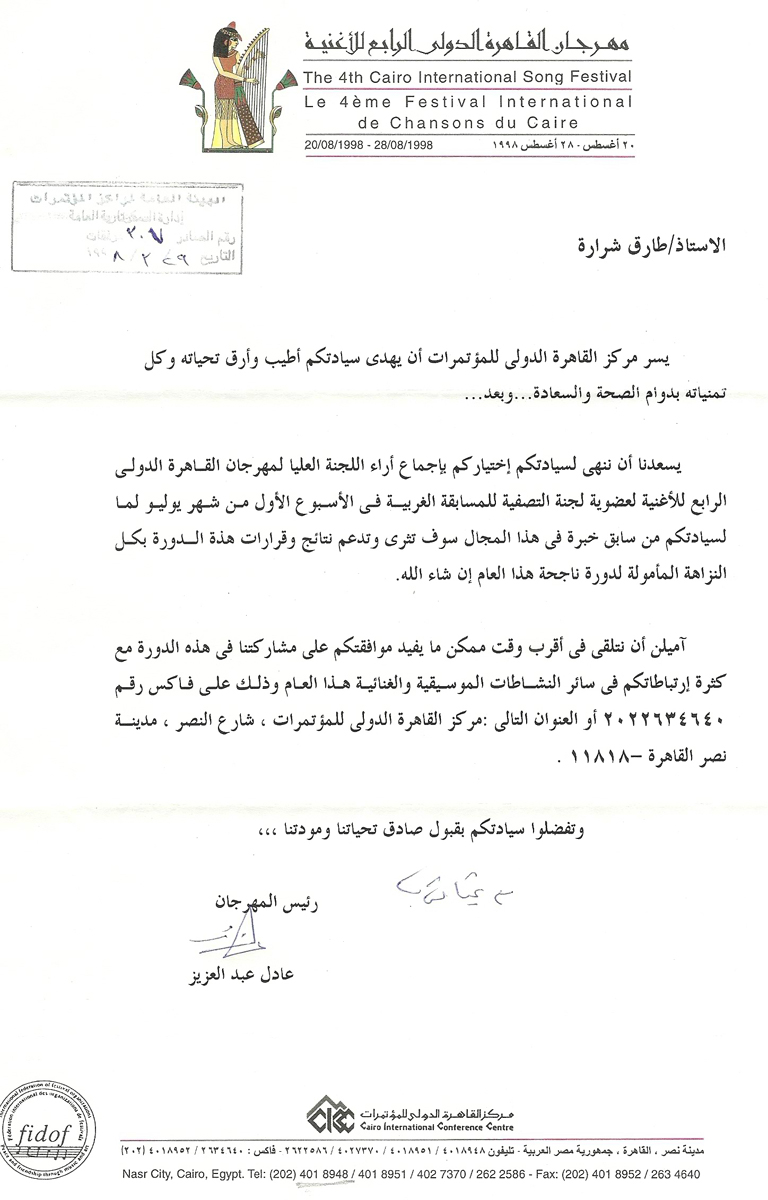 مهرجان القاهرة الدولى الرابع للأغنية
The 4th Cairo International Song Festival
Le 4ème Festival International
de Chansons du Caire
20/08/1998 - 28/08/1998 ٢٠ أغسطس - ٢٨ أغسطس ١٩٩٨
٣٠٧
التاريخ ٢٩ / ٣ / ٨
الاستاذ/طارق شرارة
يسر مركز القاهرة الدولى للمؤتمرات أن يهدى سيادتكم أطيب وأرق تحياته وكل
تمنياته بدوام الصحة والسعادة...وبعد...
يسعدنا أن ننهى لسيادتكم إختياركم بإجماع أراء اللجنة العليا لمهرجان القاهرة الدولى
الرابع للأغنية لعضوية لجنة التصفية للمسابقة الغربية فى الأسبوع الأول من شهر يوليو لما
لسيادتكم من سابق خبرة فى هذا المجال سوف تثرى وتدعم نتائج وقرارات هذة الدورة بكل
النزاهة المأمولة لدورة ناجحة هذا العام إن شاء الله.
آميلن أن نتلقى فى أقرب وقت ممكن ما يفيد موافقتكم على مشاركتنا فى هذه الدورة مع
كثرة إرتباطاتكم فى سائر النشاطات الموسيقية والغنائية هذا العام وذلك على فاكس رقم
٢٠٢٢٦٣٤٦٤٠ أو العنوان التالى :مركز القاهرة الدولى للمؤتمرات ، شارع النصر ، مدينة
نصر القاهرة –١١٨١٨ .
وتفضلوا سيادتكم بقبول صادق تحياتنا ومودتنا ،،،
رئيس المهرجان
عادل عبد العزيز
fidof
مركز القاهرة الدولى للمؤتمرات
Cairo International Conference Centre
مدينة نصر ، القاهرة ، جمهورية مصر العربية - تليفون ٤٠١٨٩٤٨ / ٤٠١٨٩٥١ / ٤٠٢٧٣٧٠ / ٢٦٢٢٥٨٦ - فاكس : ٢٦٣٤٦٤٠ / ٤٠١٨٩٥٢ (٢٠٢)
Nasr City, Cairo, Egypt. Tel: (202) 401 8948 / 401 8951 / 402 7370 / 262 2586 - Fax: (202) 401 8952 / 263 4640